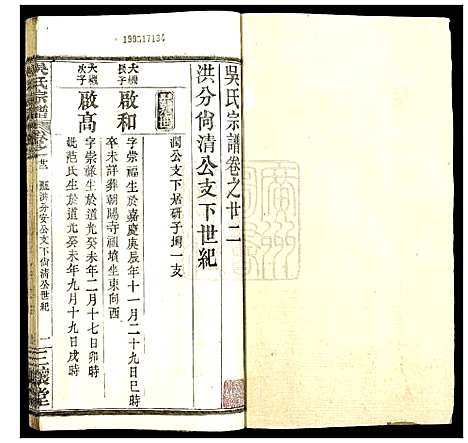 199517134
吳氏宗譜卷之廿二
洪分尙清公支下世紀
潤公支下居研子塆一支
大櫆長子
啟和
字崇福生於嘉慶庚辰年十一月二十九日巳時
卒未詳葬朝陽寺祖墳坐東向西
大櫆次子
啟高
字崇祿生於道光癸未年二月十七日卯時
妣范氏生於道光癸未年九月十九日戌時
吳氏宗譜
卷之廿二
洪分安公支下尙清公世紀
一
三讓堂